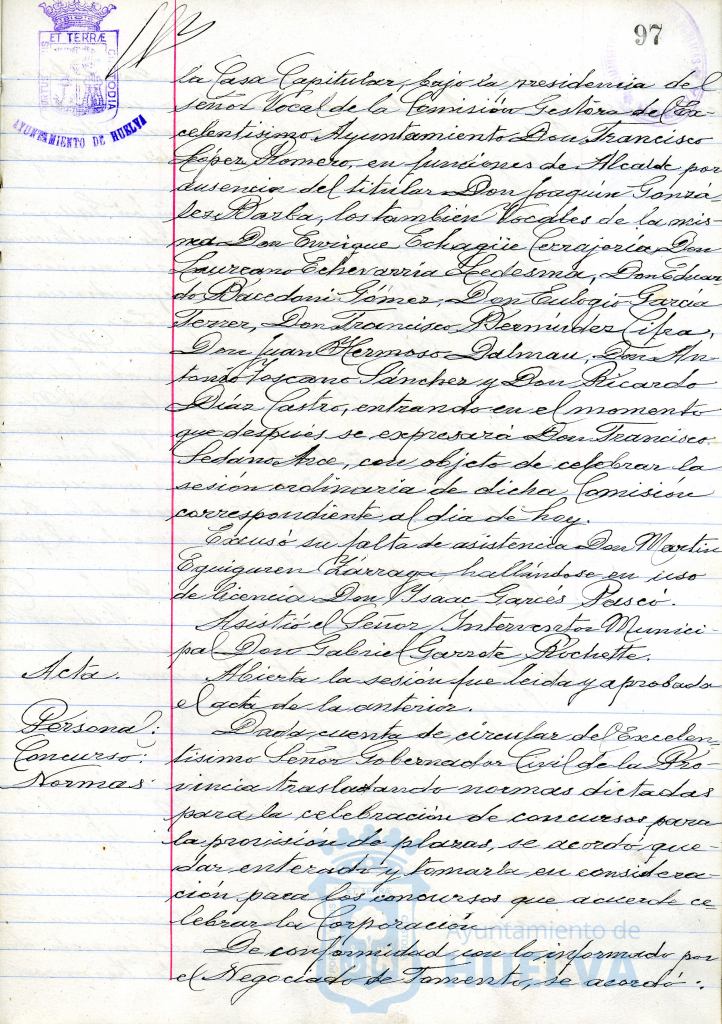 97
ET TERRÆ
CUSTODIA
AYUNTAMIENTO DE HUELVA
la Casa Capitular, bajo la presidencia del
señor Vocal de la Comisión Gestora del Ex-
celentisimo Ayuntamiento Don Francisco
López Romero, en funciones de Alcalde por
ausencia del titular Don Joaquín Gonzá-
lez Barba, los también Vocales de la mis-
ma Don Enrique Echagüe Cerrajería, Don
Laureano Echevarría Ledesma, Don Eduar-
do Bacedoni Gómez, Don Eulogio García
Ferrer, Don Francisco Bermúdez Cifra,
Don Juan Hermoso Dalmau, Don An-
tonio Toscano Sánchez y Don Ricardo
Díaz Castro, entrando en el momento
que después se expresará Don Francisco
Sedano Arce, con objeto de celebrar la
sesión ordinaria de dicha Comisión
correspondiente al dia de hoy.
Excusó su falta de asistencia Don Martin
Eguiguren Zárraga, hallándose en uso
de licencia Don Ysaac Garcés Pascó.
Asistió el Señor Interventor Munici-
pal Don Gabriel Garrote Rochette.
Acta.
Abierta la sesión fue leida y aprobada
el acta de la anterior.
Personal:
Concurso:
Normas:
Dada cuenta de circular del Excelen-
tisimo Señor Gobernador Civil de la Pro-
vincia trasladando normas dictadas
para la celebración de concursos para
la provisión de plazas, se acordó que-
dar enterado y tomarla en considera-
ción para los concursos que acuerde ce-
lebrar la Corporación.
De conformidad con lo informado por
el Negociado de Fomento, se acordó:
Ayuntamiento de
HUELVA